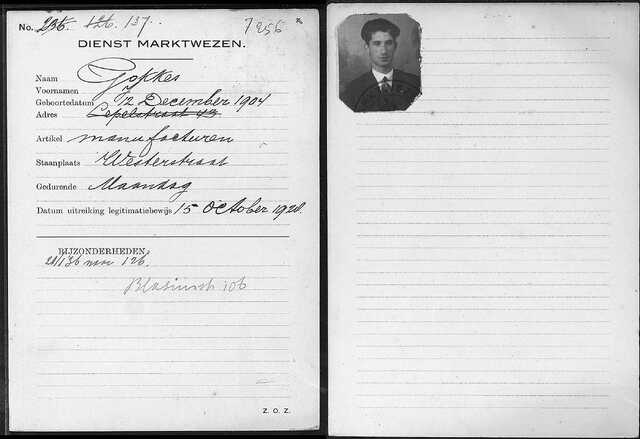 No. 236. 126. 137.
7256
DIENST MARKTWEZEN.
Naam Gokkes
Voornamen
Geboortedatum 12 December 1904
Adres Lepelstraat 43
Artikel manufacturen
Staanplaats Westerstraat
Gedurende Maandag
Datum uitreiking legitimatiebewijs 15 October 1928.
BIJZONDERHEDEN:
136 126.
106
Z. O. Z.